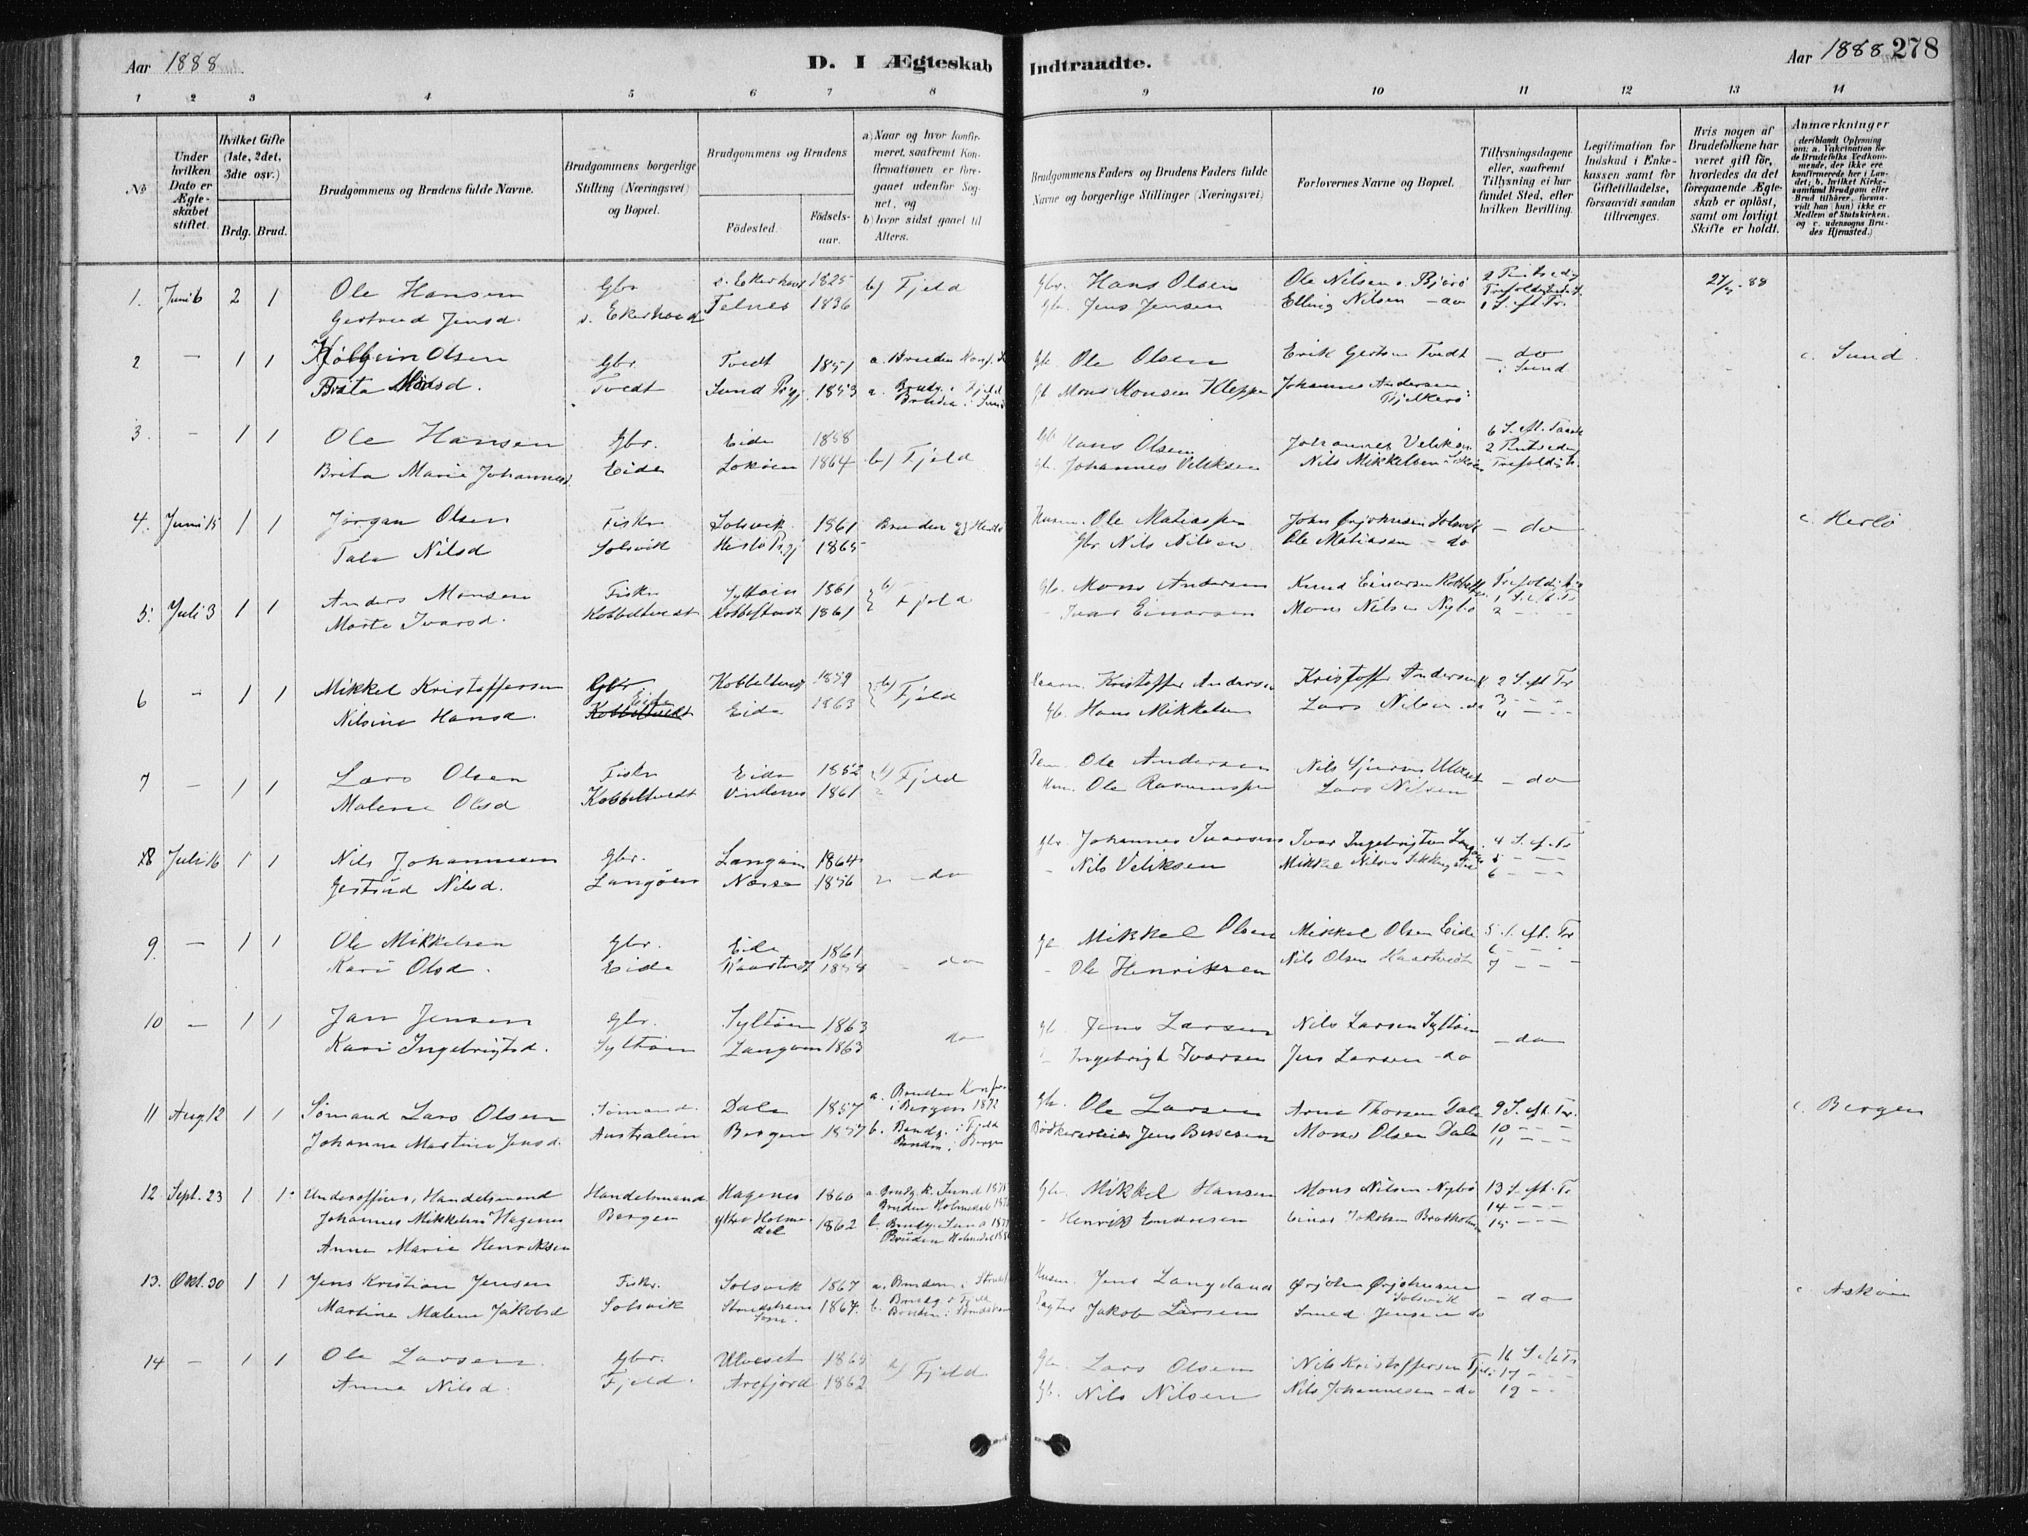 Aar 1888
D. I Ægteskab Indtraadte.
Aar 1888 278
1 2 3 4 5 6 7 8 9 10 11 12 13 14
No
Under hvilken Dato er Ægteskabet stiftet.
Hvilket Gifte (1ste, 2det, 3die osv.)
Brdg. Brud.
Brudgommens og Brudens fulde Navne.
Brudgommens borgerlige Stilling (Næringsvei) og Bopæl.
Brudgommens og Brudens
Fødested. Fødselsaar.
a) Naar og hvor konfirmeret, saafremt Konfirmationen er foregaaet udenfor Sognet, og
b) hvor sidst gaaet til Alters.
Brudgommens Faders og Brudens Faders fulde Navne og borgerlige Stillinger (Næringsvei)
Forlovernes Navne og Bopæl.
Tillysningsdagene eller, saafremt Tillysning ei har fundet Sted, efter hvilken Bevilling.
Legitimation for Indskud i Enkekassen samt for Giftetilladelse, forsaavidt saadan tiltrænges.
Hvis nogen af Brudefolkene har været gift før, hvorledes da det foregaaende Ægteskab er opløst, samt om lovligt Skifte er holdt.
Anmærkninger (deriblandt Oplysning om: a. Vakcination for de Brudefolks Vedkommende, der ikke ere konfirmerede her i Landet; b. hvilket Kirkesamfund Brudgom eller Brud tilhører, forsaavidt han (hun) ikke er Medlem af Statskirken, og c. udensogns Brudes Hjemsted.)
1. Juni 6 2 1 Ole Hansen Gbr s. Ekerhovd 1825 b) Fjeld Gbr. Hans Olsen Ole Nilsen s. Bjorø 2 Pintsedg
Gertrud Jensd. s. Ekerhovd Telnes 1836 Gbr. Jens Jensen Elling Nilsen - do 1 S. eft Tr.
2 - 1 1 Olsen Gbr Tvedt 1857 a. Bruden Gb. Ole Olsen Erik Gertsen Tvedt - do i Sund c. Sund
Brita Monsd. Tvedt Sund Pgj. 1853 a. Brudg. i Fjeld Bruden i Sund Gb Mons Monsen Kleppe Johannes Andersen
3. - 1 1 Ole Hansen Gbr. Eide 1858 Gb Hans Olsen Johannes Veliksen 2 Pintsedag
Brita Marie Johannesd. Eide Lokøen 1864 b) Fjeld Gb. Johannes Veliksen Nils Mikkelsen
4. Juni 15 1 1 Jørgen Olsen Fisker Solsvik 1861 Bruden Husm. Ole Matiassen Solsvik - do c. Herlø
Nilsd Solsvik Herlø Pgj 1865 Gbr Nils Nilsen Ole Matiassen - do
5. Juli 3 1 1 Anders Monsen Fisker Syltøen 1861 b) Fjeld Gb. Mons Andersen Knud Einarsen 1 S. eft. Tr
Marte Ivarsd. Kobbeltvedt Kobbeltvedt 1861 - Ivar Einarsen Mons Nilsen Nybø 2 - - -
6 - 1 1 Mikkel Kristoffersen Gbr Eide Kobbeltvedt 1859 b) Fjeld Kristoffer Andersen Kristoffer Andersen 2 S. eft Tr
Nilsine Hansd. Kobbeltvedt Eide 1863 Gb. Hans Mikkelsen Lars Nilsen - do 3 - - 4 - -
7 - 1 1 Lars Olsen Fisker Eide 1852 b) Fjeld Ole Andersen Nils Sjursen Ulveset - do
Malene Olsd Kobbeltvedt Vindenes 1861 Hm. Ole Rasmussen Lars Nilsen
8 Juli 16 1 1 Nils Johannesen Gbr. Langøen 1864 Gbr. Johannes Ivarsen Ivar Ingebrigtsen 4 S. ef. Tr
Gertrud Nilsd. Langøen Næsse 1856 - do - Nils Veliksen Mikkel Nilsen 5 - - - 6 - - -
9. - 1 1 Ole Mikkelsen Gbr. Eide 1861 Gb Mikkel Olsen Mikkel Olsen Eide 5 S. eft. Tr
Kari Olsd. Eide Kaartvedt 1854 - do - Ole Henriksen Nils Olsen Kaartvedt 6 - - 7 - -
10 - 1 1 Jan Jensen Gbr. Syltøen 1863 Gb. Jens Larsen Nils Larsen Syltøen - do
Kari Ingebrigtsd. Syltøen Langøen 1863 do Ingebrigt Ivarsen Jens Larsen - do
11 Aug. 12 1 1 Sømand Lars Olsen Sømand. Dale 1857 a. Bruden Konf. i Bergen 1872 Gbr. Ole Larsen Arne Thorsen Dale 9 S. eft. Tr. c. Bergen
Johanne Martine Jensd. Australien Bergen 1857 b. Brudg. i Fjeld Bruden i Bergen Bødkerarbeider Jens Mons Olsen Dale 10 - - - 11 - - -
12 Sept. 23 1 1 Underofficer, Handelsmand Handelsmand Hagenes 1860 a. Brudg. k. Sund Bruden Holmedal Gbr. Mikkel Hansen Mons Nilsen Nybø 13 S. eft. Tr
Johannes Mikkelsen Hagenes Bergen Holmedal 1862 b. Brudg. Sund Bruden Holmedal - Henrik Endresen Einar Jakobsen Bratholmen 14 - - - 15 - - -
Anne Marie Henriksen
13. Okt. 30 1 1 Jens Kristian Jensen Fiskr. Solsvik 1867 a. Bruden i Husm. Jens Langeland Solsvik - do c. Askøen
Martine Malene Jakobsd Solsvik 1864. b. Brudg i Fjeld Bruden i Jakob Larsen Jensen do
14 - 1 1 Ole Larsen Gbr. Ulveset 1865 b) Fjeld Gbr. Lars Olsen Nils Kristoffersen Fjeld 16 S. eft Tr
Anne Nilsd. Fjeld. Arefjord 1862 Gb. Nils Nilsen Nils Johannesen - do 17 - - - 19 - -